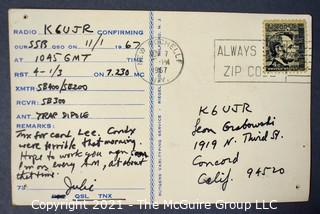 RADIO K6UJR CONFIRMING
OUR SSB QSO ON 11/1 1967
AT 1045 GMT TIME
RST 4-1/3 ON 7.230 MC
XMTR SB400/SB200
RCVR SB300
ANT TRAP DIPOLE
REMARKS:
Tnx for card Lee. Condx
were terrible that morning.
Hope to work you again
that time.
73 Julie
QSL TNX
NOV 7
PM
1967
N.Y.
ALWAYS
ZIP CODE
K6UJR
Leon Grabowski
1919 N. Third St.
Concord
Calif. 94520
Copyright © 2021 - McGruder Group Inc.